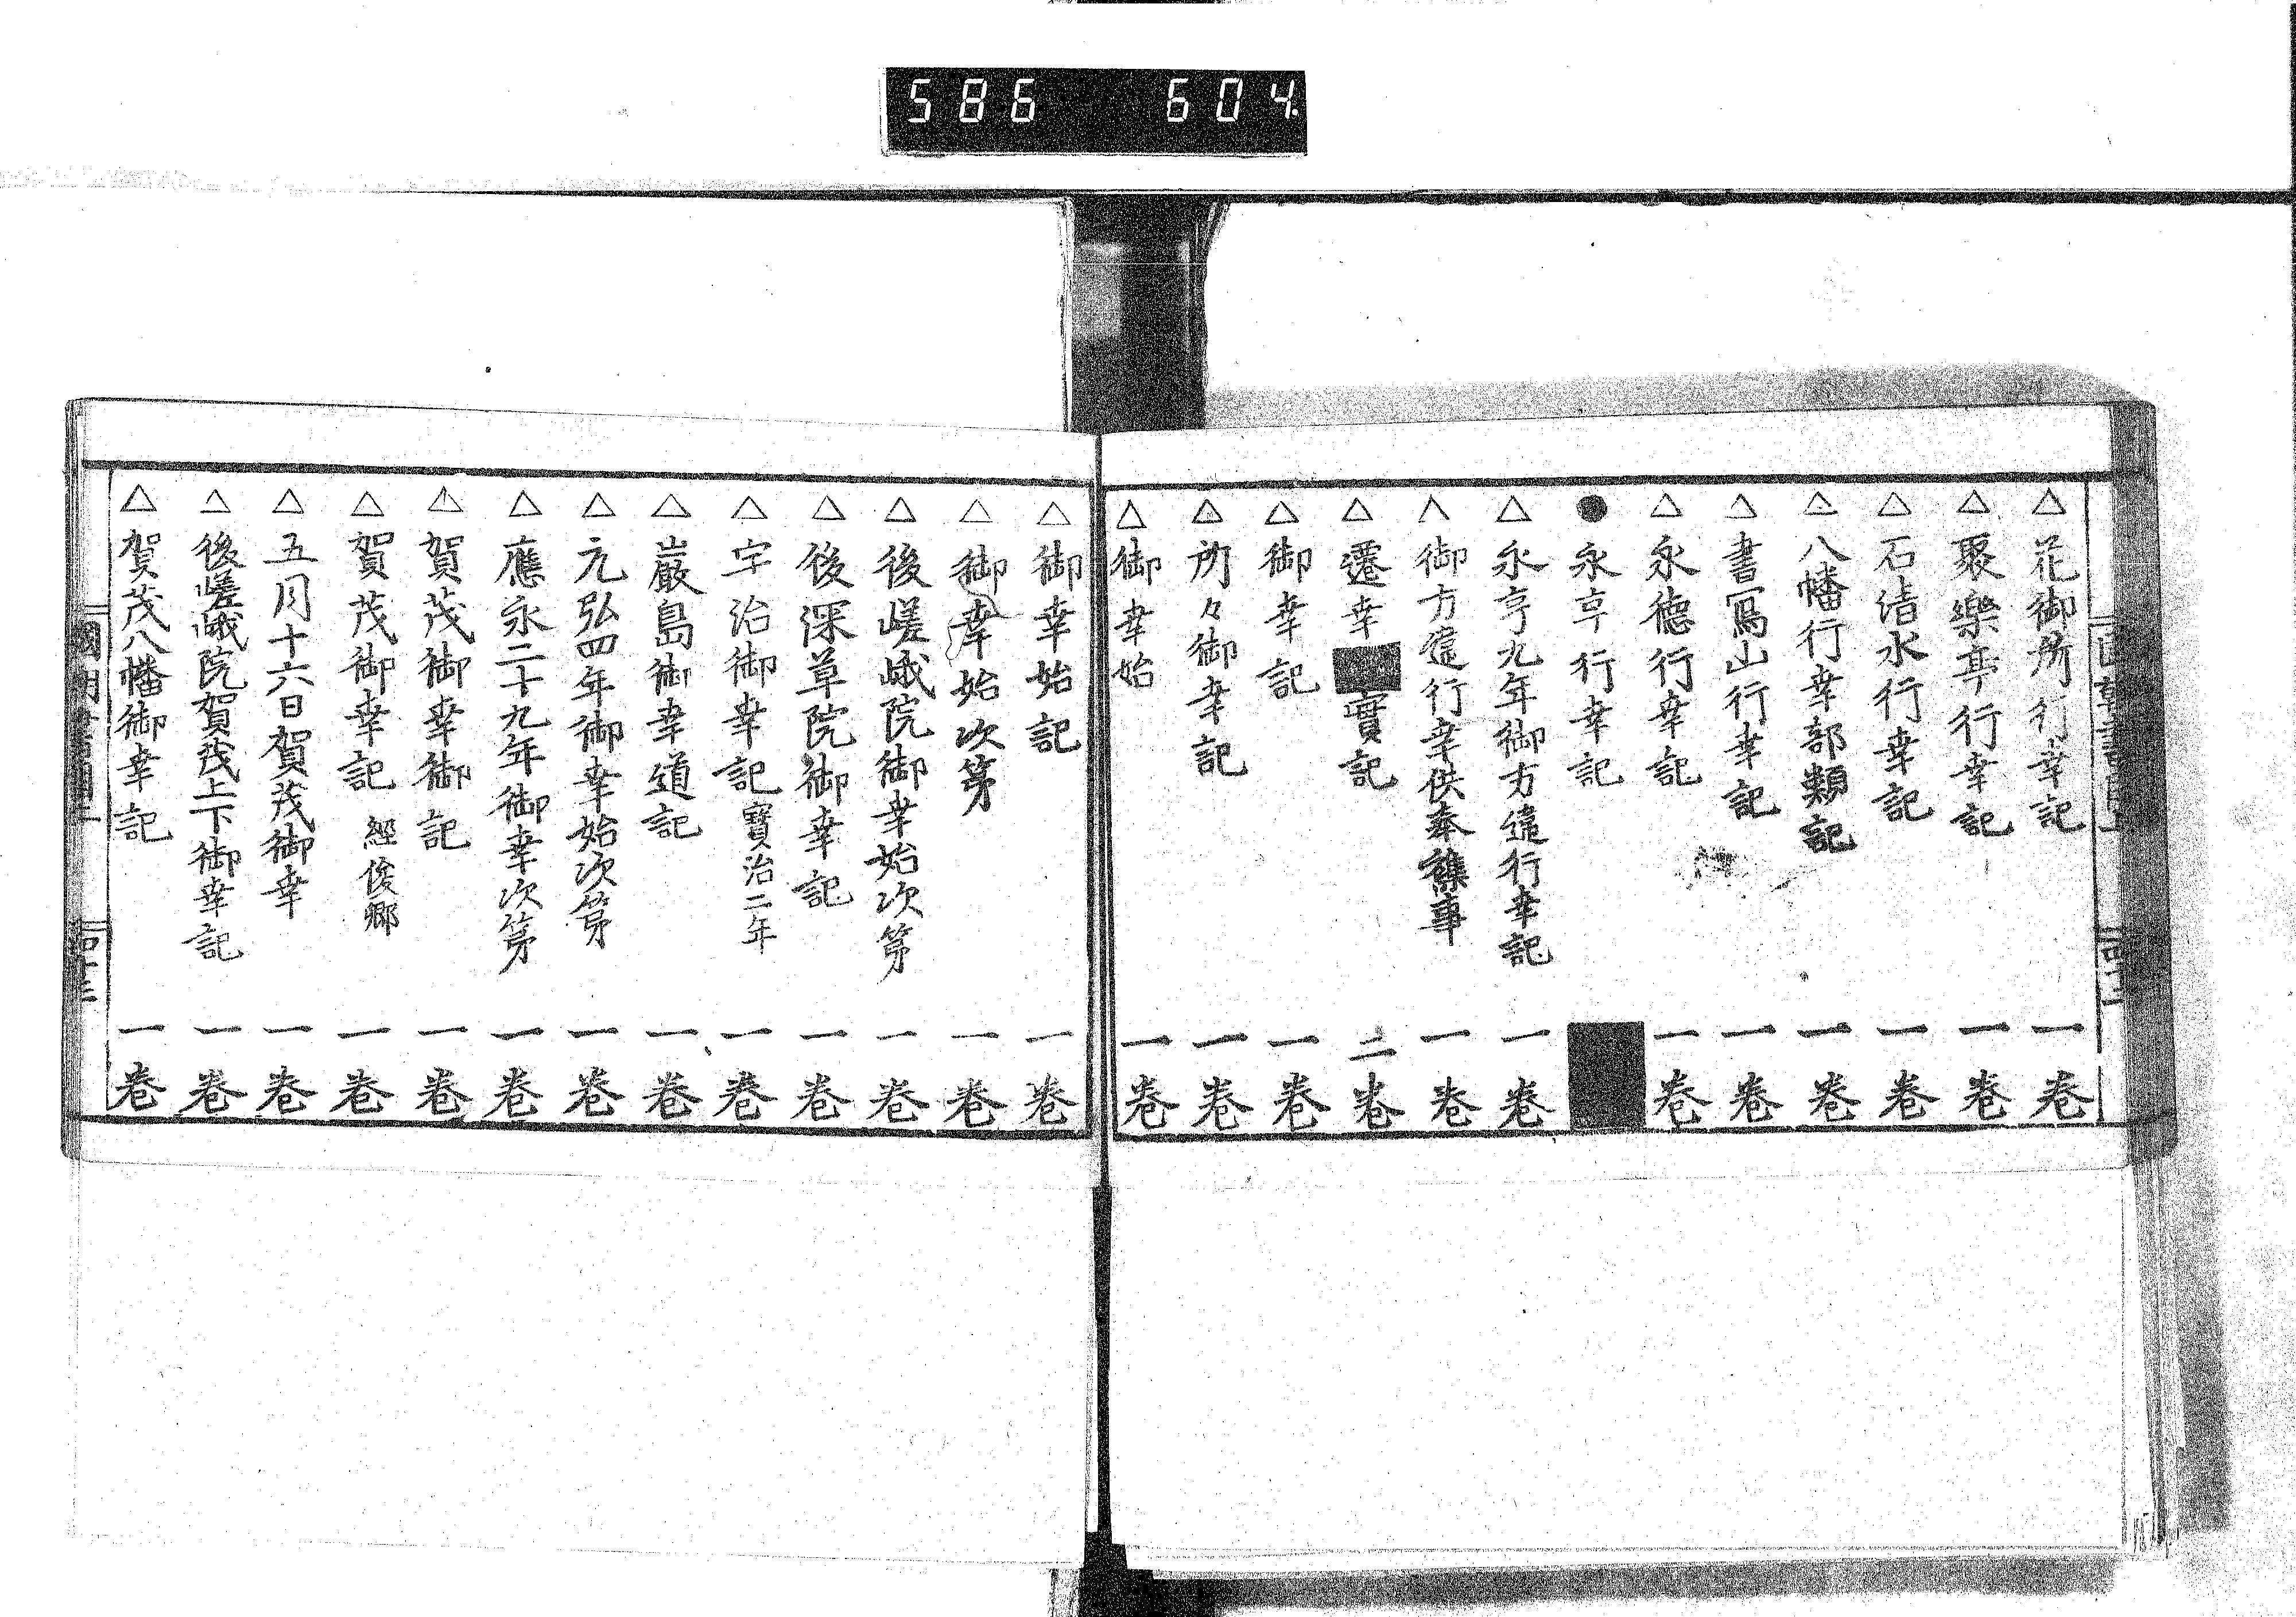 586 604.
△花御所行幸記 一卷
△聚樂亭行幸記 一卷
△石清水行幸記 一卷
△八幡行幸部類記 一卷
△書寫山行幸記 一卷
△永德行幸記 一卷
●永享行幸記
△永享九年御方違行幸記 一卷
△御方違行幸供奉雜事 一卷
△遷幸■實記 二卷
△御幸記 一卷
△所々御幸記 一卷
△御幸始 一卷
△御幸始記 一卷
△御幸始次第 一卷
△後嵯峨院御幸始次第 一卷
△後深草院御幸記 一卷
△宇治御幸記 寶治二年 一卷
△嚴島御幸道記 一卷
△元弘四年御幸始次第 一卷
△應永二十九年御幸次第 一卷
△賀茂御幸御記 一卷
△賀茂御幸記 經俊卿 一卷
△五月十六日賀茂御幸 一卷
△後嵯峨院賀茂上下御幸記 一卷
△賀茂八幡御幸記 一卷